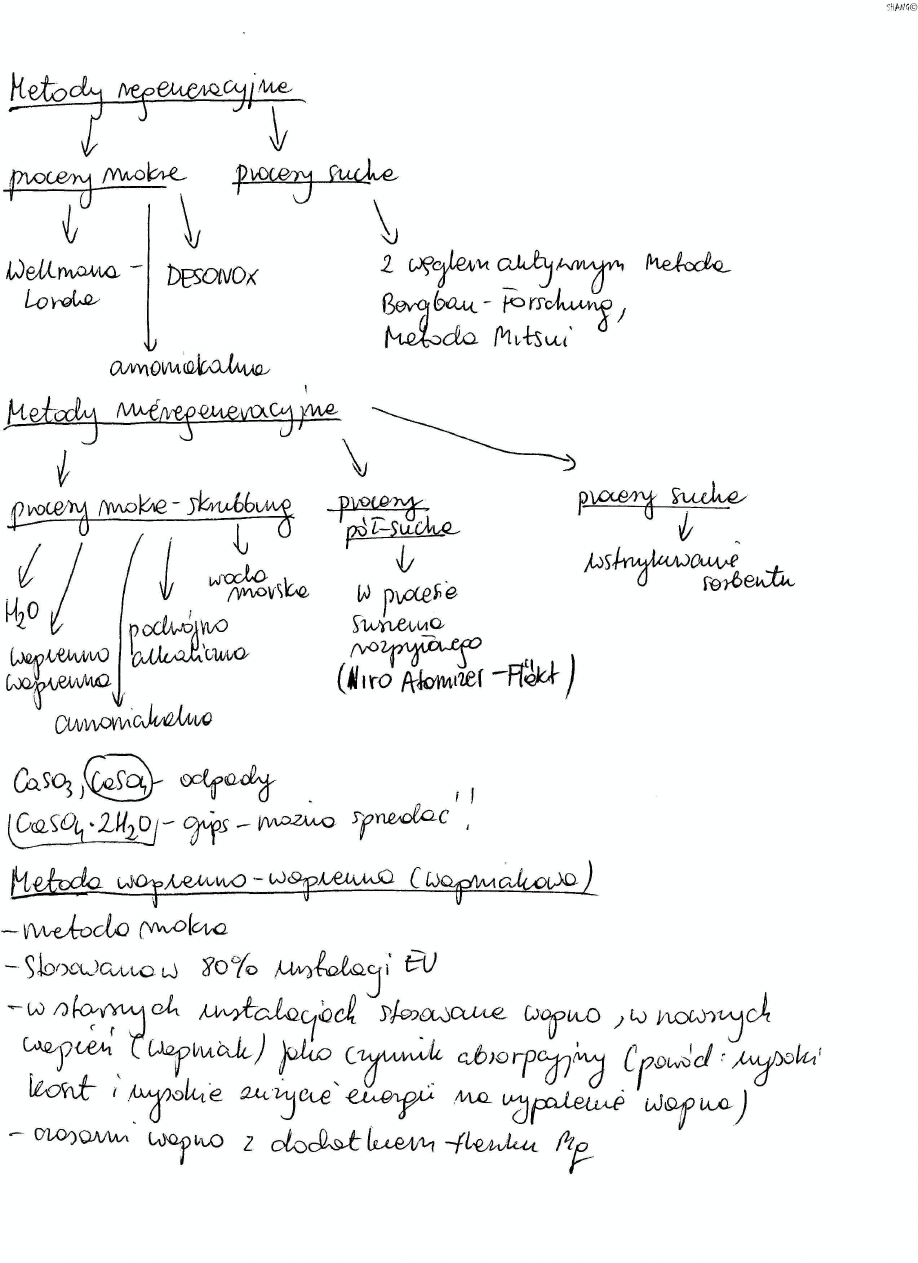 SHANG©
Metody regeneracyjne
procesy mokre procesy suche
Wellmana -
Lorda
DESONOX
amoniakalna
z węglem aktywnym Metoda
Bergbau - Forschung,
Metoda Mitsui
Metody nieregeneracyjne
procesy mokre - skrubbing
procesy
pół-suche
procesy suche
H₂O
wapienno
wapienna
amoniakalna
podwójno
alkaliczna
woda
morska
w procesie
suszenia
rozpyłowego
(Niro Atomizer - Fläkt)
wstrzykiwanie
sorbentu
CaSO₃, CaSO₄ - odpady
CaSO₄·2H₂O - gips - można sprzedać!!
Metoda wapienno-wapienna (wapniakowa)
- metoda mokra
- Stosowana w 80% instalacji EU
- w starszych instalacjach stosowane wapno, w nowszych
wapień (wapniak) jako czynnik absorpcyjny (powód: wysoki
koszt i wysokie zużycie energii na wypalenie wapna)
- czasami wapno z dodatkiem tlenku Mg